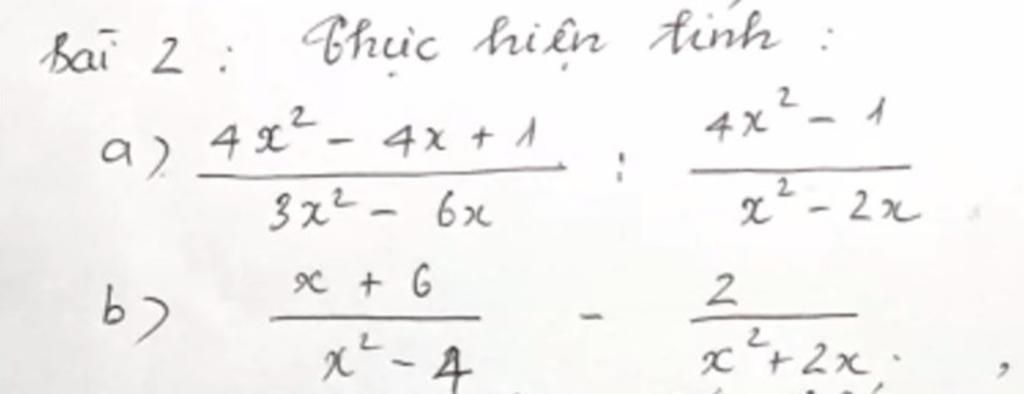 Bài 2 : Thực hiện tính :
a) \frac{4x^2 - 4x + 1}{3x^2 - 6x} : \frac{4x^2 - 1}{x^2 - 2x}
b) \frac{x + 6}{x^2 - 4} - \frac{2}{x^2 + 2x} . ,